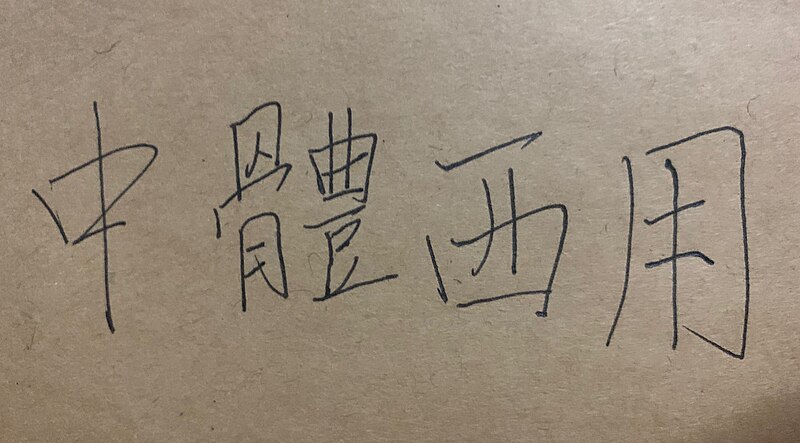 中體西用